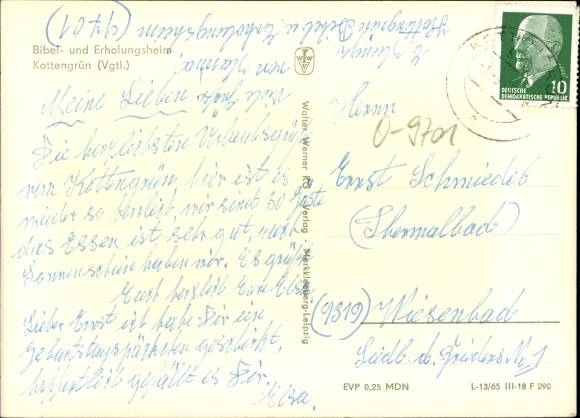 Bibel- und Erholungsheim
Kottengrün (Vgtl.)
(9701)
Kottengrün Bibel u. Erholungsheim
von Hanna!
Viele Grüße
Meine Lieben
Die herzlichsten Urlaubsgrüße
von Kottengrün, hier ist es
wieder so herrlich, wir sind 80 Gäste
das Essen ist sehr gut, auch
Sonnenschein haben wir. Es grüßt
Euch herzlich Eure Elsa.
Lieber Ernst ich habe Dir ein
Geburtstagspäckchen geschickt,
hoffentlich gefällt es Dir.
Elsa.
Walter Werner KG · Verlag · Markkleeberg-Leipzig
DEUTSCHE
DEMOKRATISCHE REPUBLIK
10
Herrn
O-9701
Ernst Schmiedel
(Thermalbad)
(9319) Wiesenbad
Siedl. d. Friedens Nr. 1
EVP 0,25 MDN
L-13/65 III-18 F 290